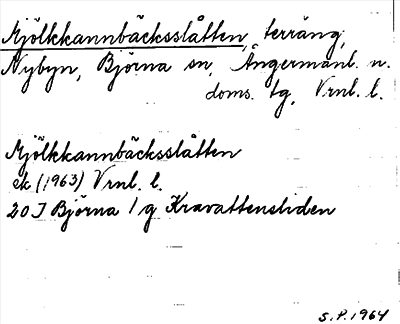 Mjölkkannbäcksslåtten, terräng,
Nybyn, Björna sn, Ångermanl. n.
doms. tg, Vrnl. l.
Mjölkkannbäcksslåtten
ek (1963) Vrnl. l.
20 J Björna 1 g Kravattensliden
S.P. 1964